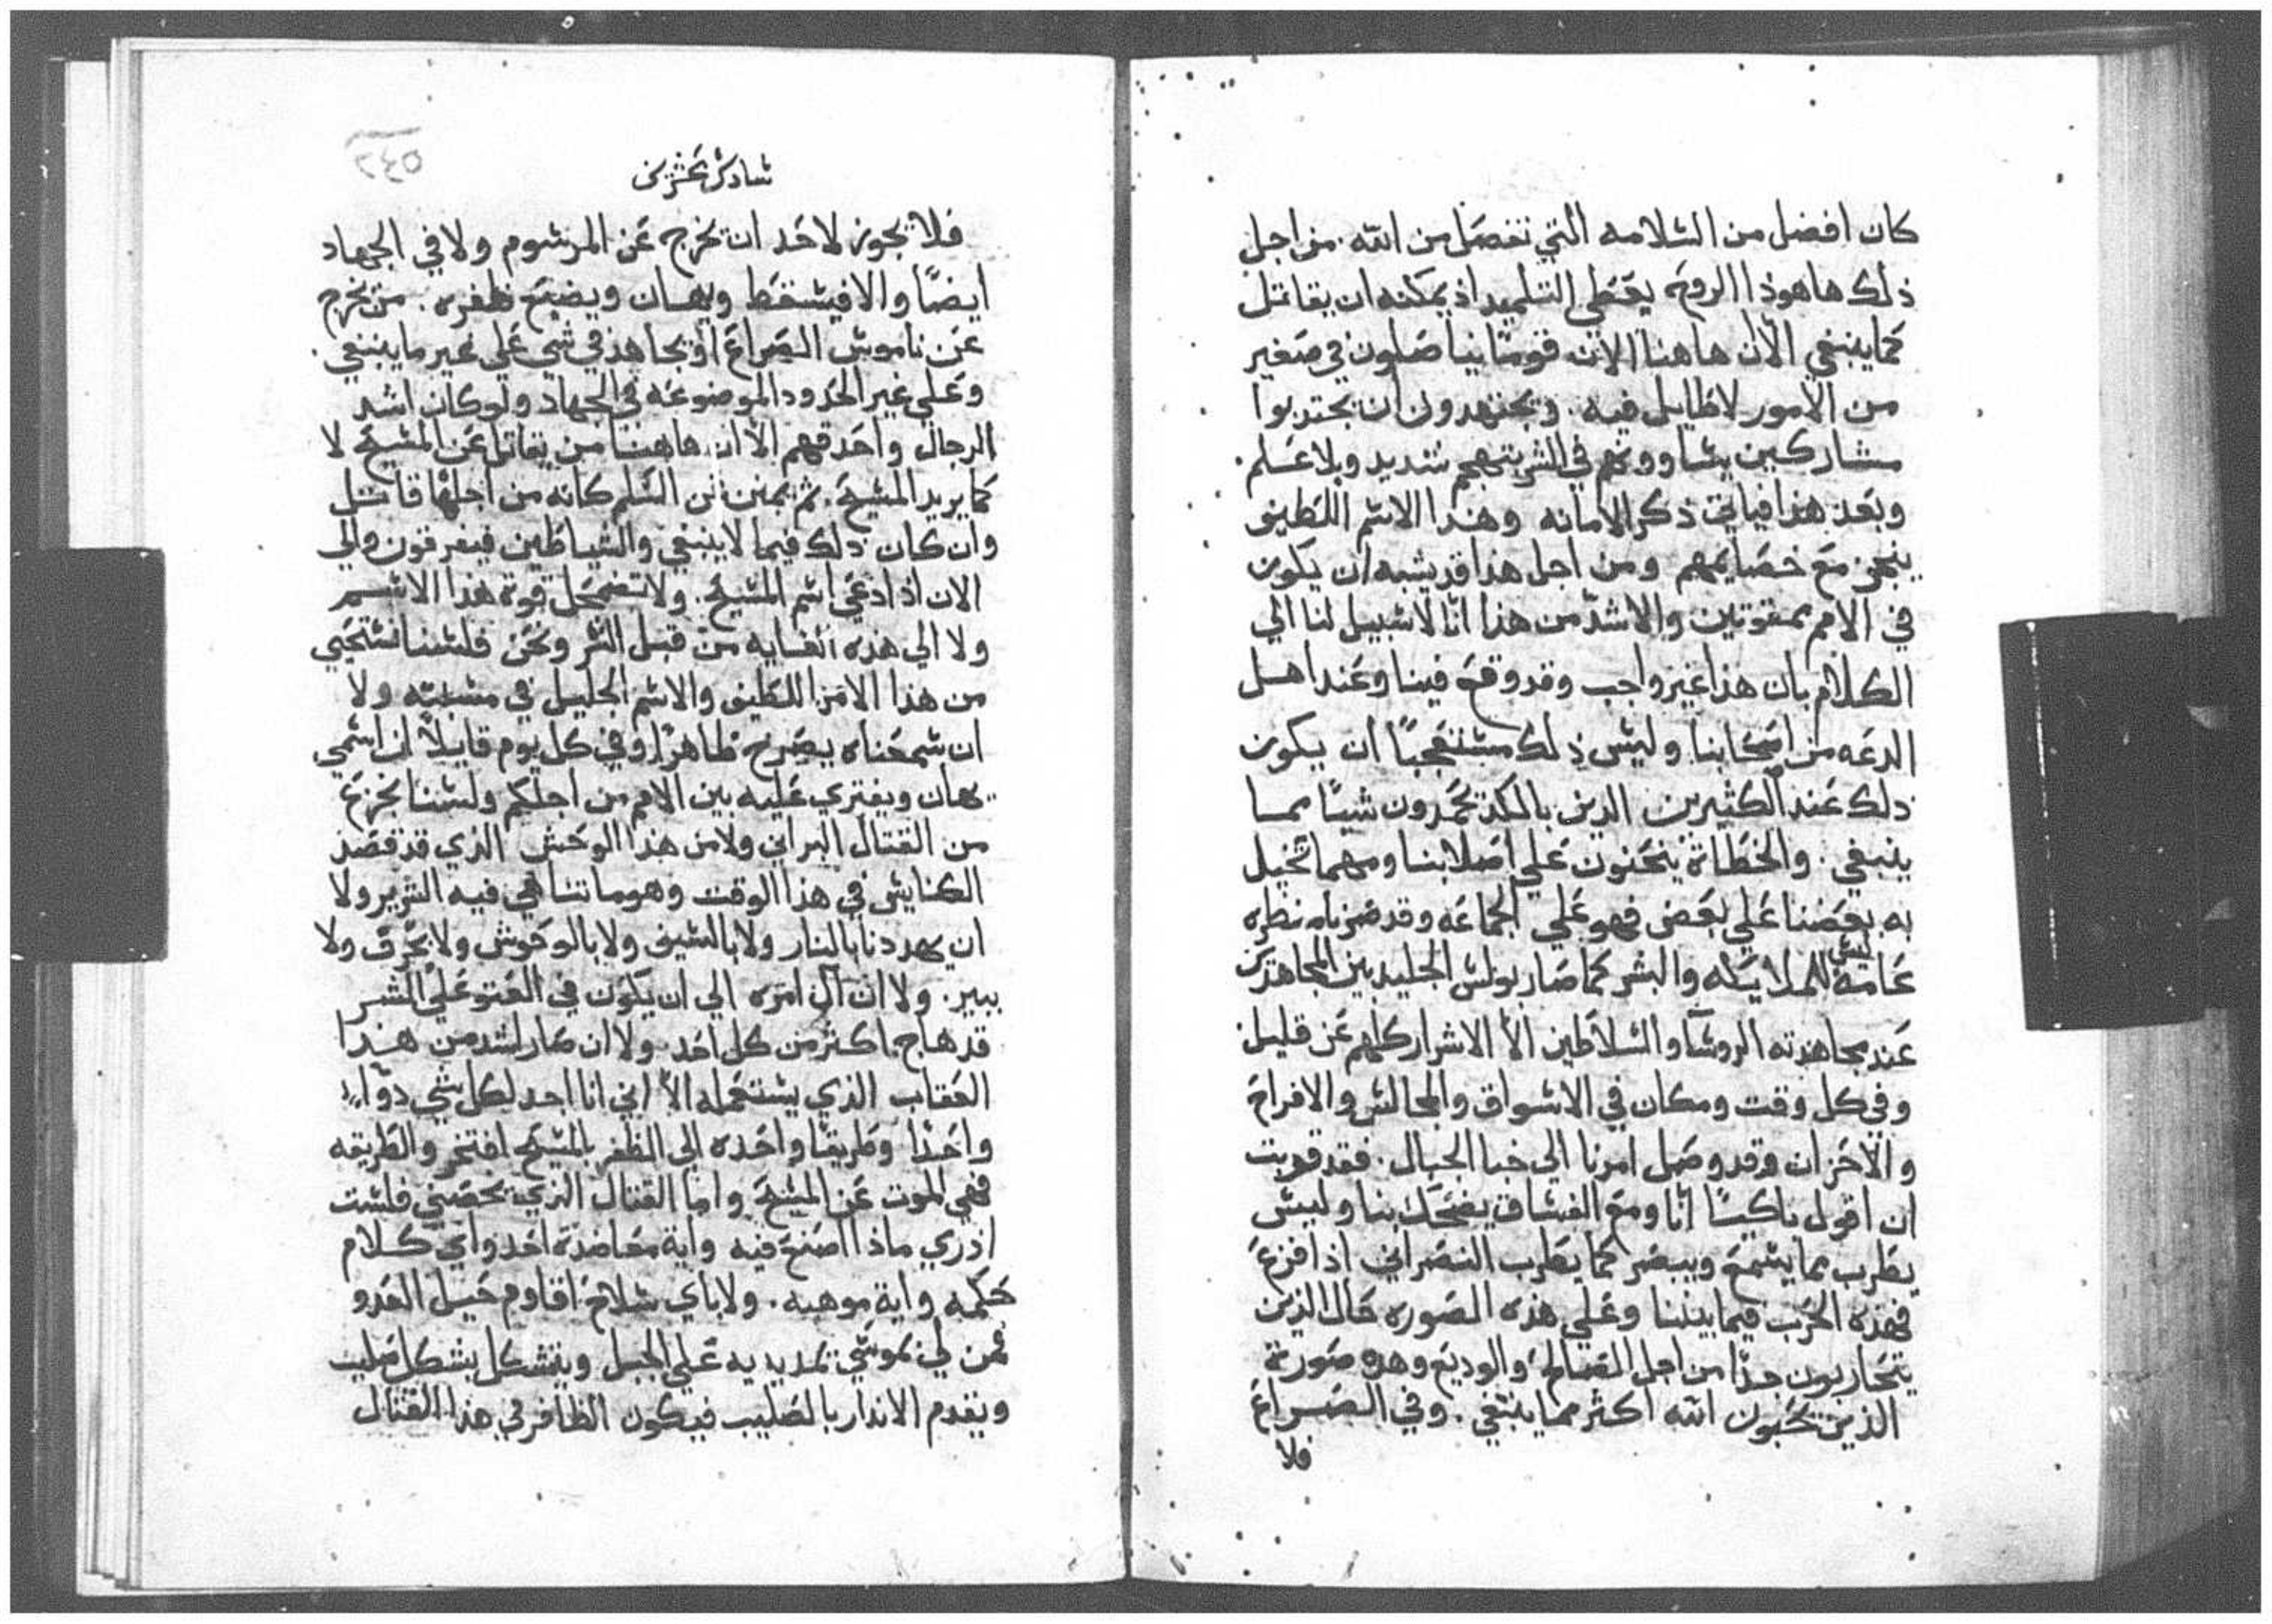 كان افضل من السلامه التي تفصل من الله. من اجل
ذلك هاهوذا الروح يعطي التلميد اذ يمكنه ان يقاتل
كما ينبغي الان هاهنا الا ان قومًا يناضلون في صغير
من الامور لا طايل فيه. ويجتهدون ان يجتدبوا
مشاركين يساووهم في الشر بتهجم شديد وبلا علم.
وبعد هذا فياتي ذكر الامانه وهذا الاسم اللطيف
ينجر مع خصايمهم ومن اجل هذا قد يشبه ان يكون
في الامم ممقوتين والاشد من هذا انا لا سبيل لنا الي
الكلام بان هذا غير واجب وقد وقع فينا وعند اهل
الدعه من اصحابنا وليس ذلك مستعجبًا ان يكون
دلك عند الكثيرين الدين بالكد يحمدون شيًا مما
ينبغي. والخطاة ينحنون علي اصلابنا ومهما تخيل
به بعضنا علي بعض فهو علي الجماعه وقد صرنا منظره
عامة ليس للملايكه والبشر كما صار بولس الجليد بين المجاهدين
عند مجاهدته الروسا والسلاطين الا الاشرار كلهم عن قليل
وفي كل وقت ومكان في الاسواق والمجالس والافراح
والاحزان وقد وصل امرنا الي خبا الخيال. فقد قربت
ان اقول باكيًا انا ومع الفساق يضحك بنا وليس
يطرب بما يسمع ويبصر كما يطرب النصراني اذا فزع
فهذه الحرب فيما بيننا وعلي هذه الصوره حال الذين
يتحاربون جدًا من اجل الصالح والوديع وهده صورة
الذين يحبون الله اكثر مما ينبغي. وفي الصراع
فلا
سادس عشرين
٥٤٢
فلا يجوز لاحد ان يخرج عن المرسوم ولا في الجهاد
ايضًا والا فيسقط ويهان ويضيع ظفره. من يخرج
عن ناموس الصراع او يجاهد في شي علي غير ما ينبغي.
وعلي غير الحدود الموضوعه في الجهاد ولو كان اشد
الرجال واحدقهم الا ان هاهنا من يقاتل عن المسيح لا
كما يريد المسيح. ثم يمنن لن السلم كانه من اجلها قاتل
وان كان ذلك فيما لا ينبغي والشياطين فيفرقون والي
الان اذا دعي اسم المسيح. ولا تضمحل قوة هذا الاسم
ولا الي هذه الغايه من قبل الشر ونحن فلسنا نستحيي
من هذا الامر اللطيف والاسم الجليل في مسبته ولا
ان سمعناه يصرح ظاهرًا وفي كل يوم قايلاً ان اسمي
يهان ويفتري عليه بين الامم من اجلكم ولسنا نجزع
من القتال البراني ولا من هذا الوحش الذي قد قصد
الكنايس في هذا الوقت وهو ما تناهي فيه الشرير ولا
ان يهددنا بالنار ولا بالسيف ولا بالوحوش ولا بحرق ولا
ببير. ولا ان آل امره الي ان يكون في العتو علي الشر
قد هاج اكثر من كل احد ولا ان صار اشد من هذا
العقاب الذي يستعمله الا اني انا اجد لكل شي دوآ
واحدًا وطريقًا واحده الي الظفر بالمسيح افتخر والطريقه
فهي الموت عن المسيح واما القتال الذي يحصني فلست
ادري ماذا اصنع فيه واية معاضدة اخد واي كلام
حكمه واية موهبه. ولا باي سلاح اقاوم حيل العدو
فمن لي بموسي تمد يديه علي الجبل ويتشكل بشكل صليب
ويقدم الاندار بالصليب فيكون الظافر في هذا القتال